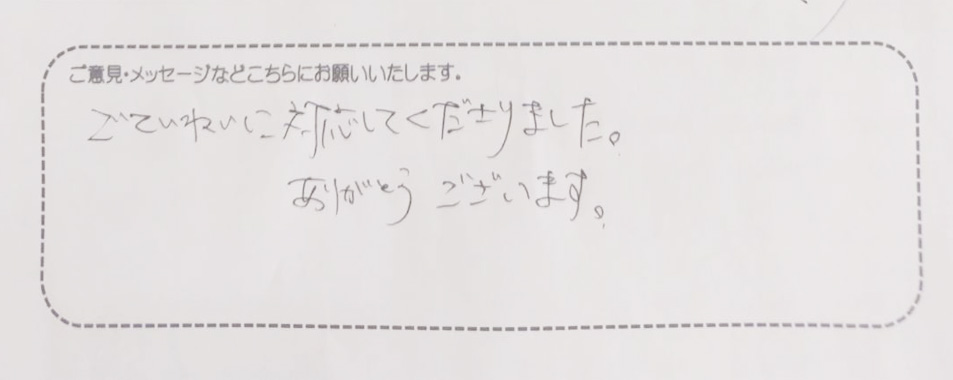 ご意見・メッセージなどこちらにお願いいたします。
ごていねいに対応してくださりました。
ありがとうございます。